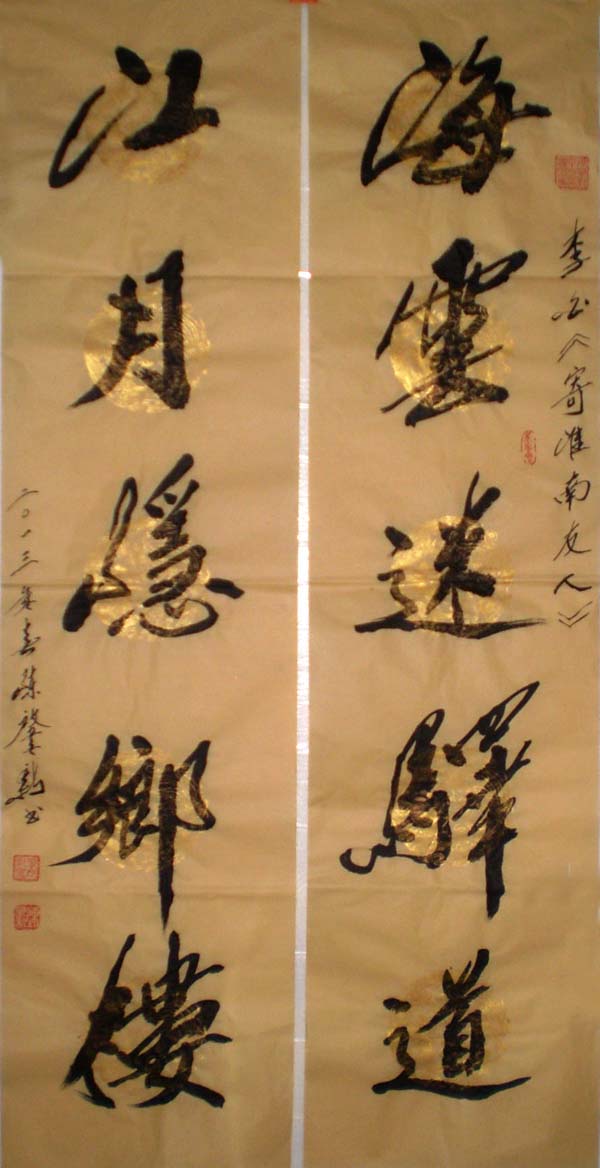 李白《寄淮南友人》
海雲迷驛道
江月隱鄉樓
二〇一三年春陈书